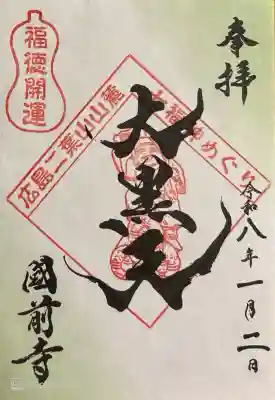 奉拝
令和八年一月二日
福徳開運
広島二葉山山麓
七福神めぐり
大黒天
國前寺